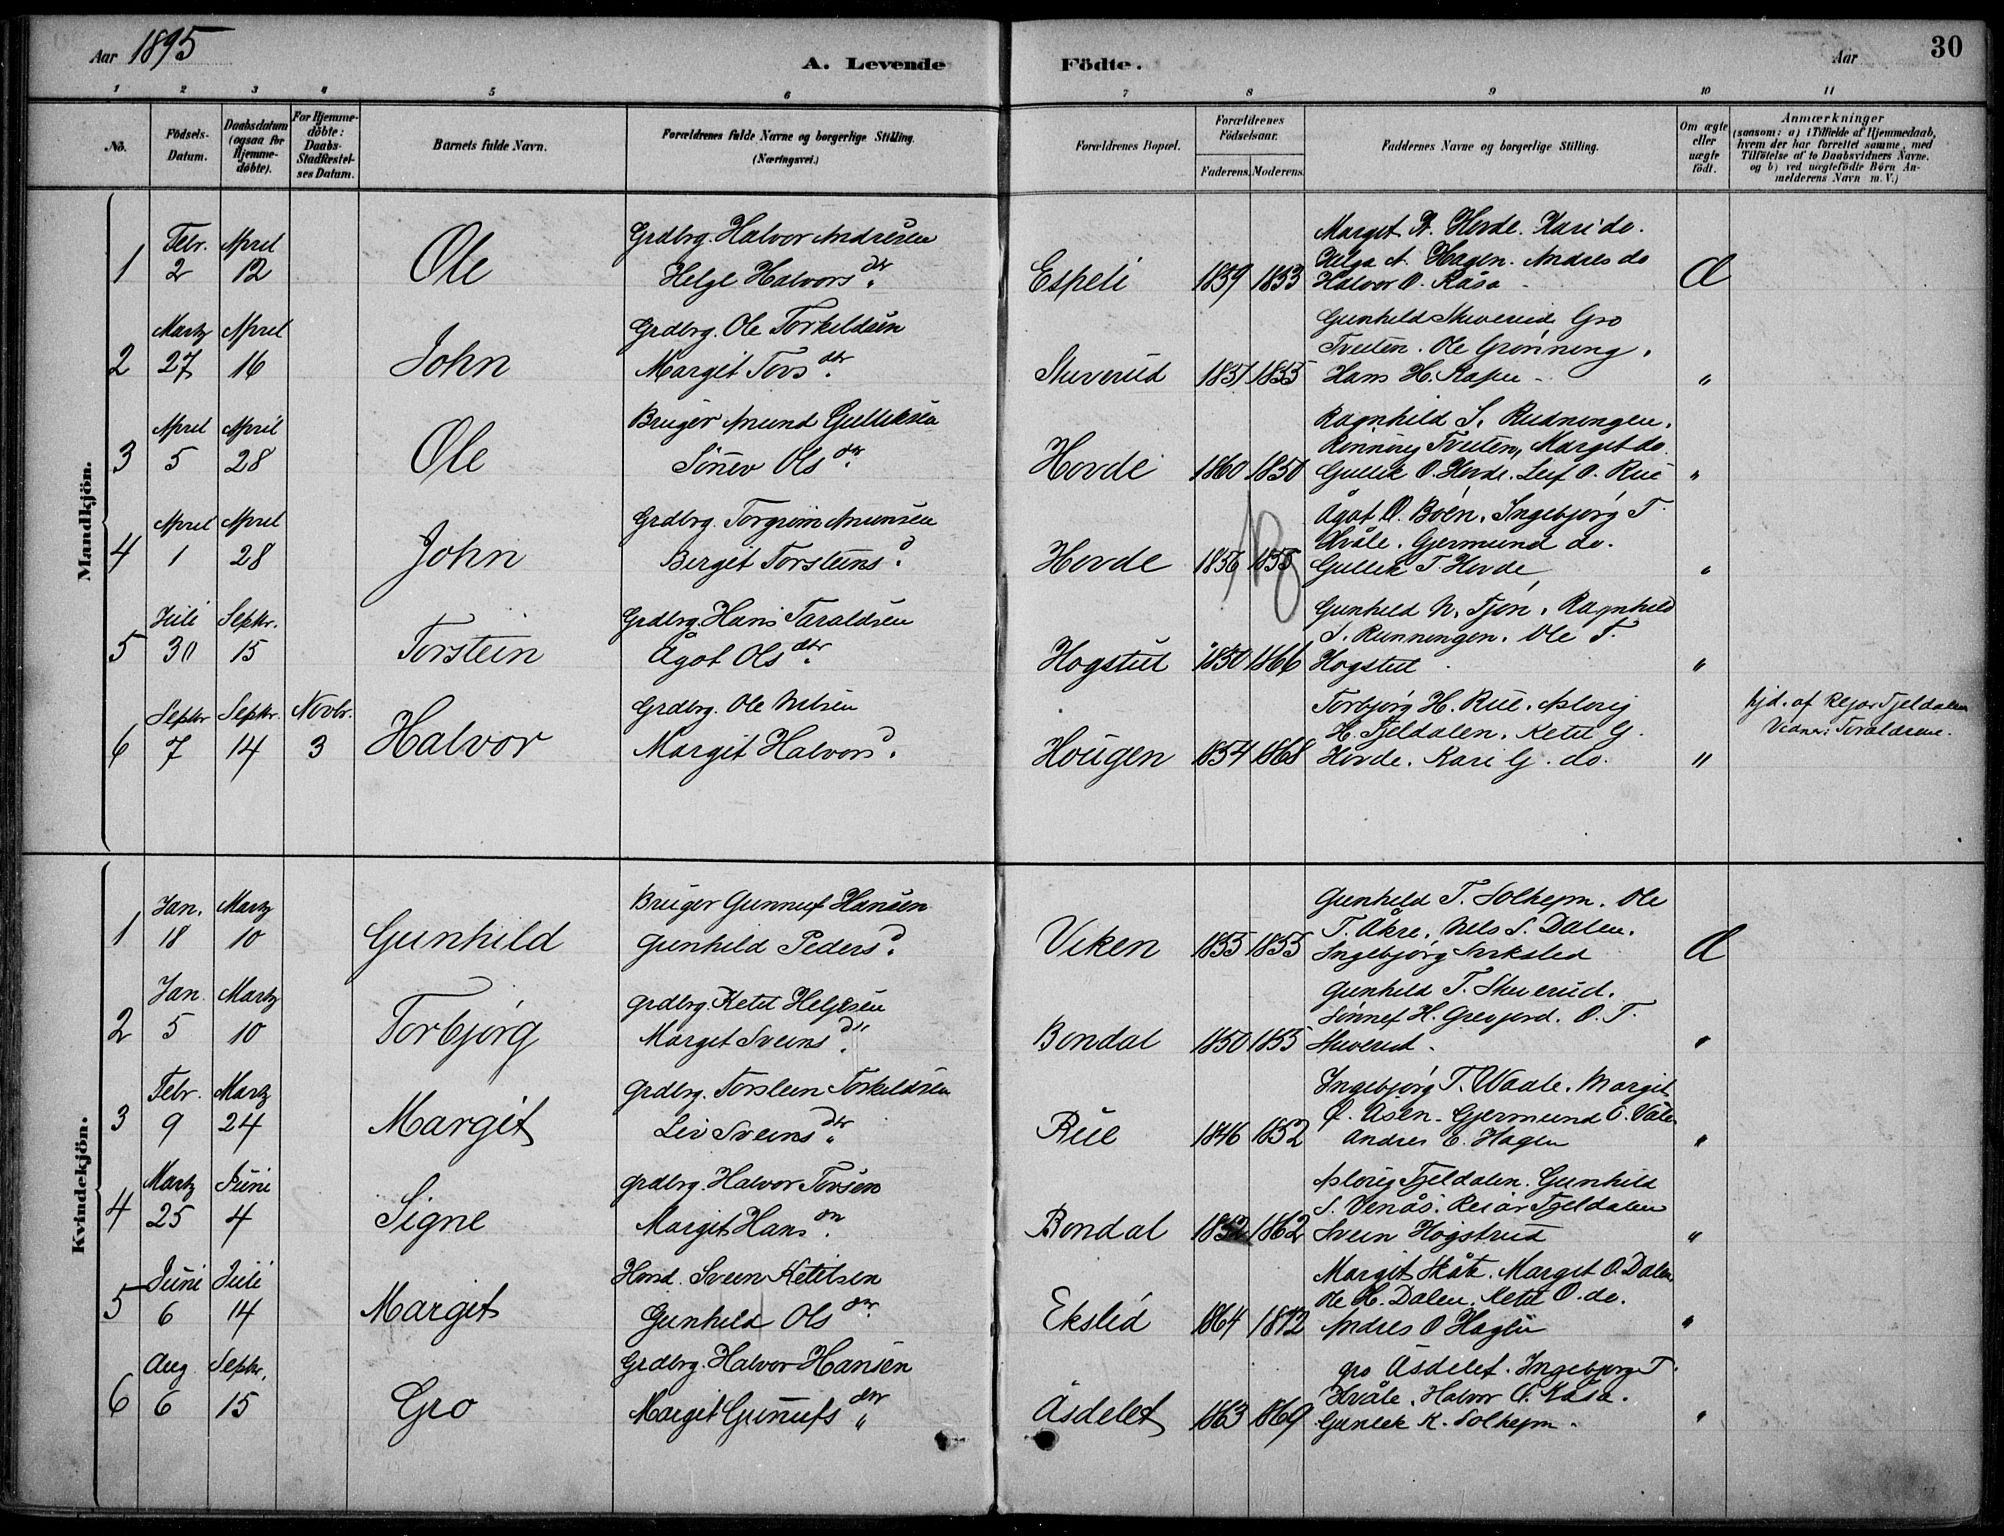 Aar 1895
A. Levende Födte.
Aar
30
1 2 3 4 5 6 7 8 9 10 11
No.
Födsels-Datum.
Daabsdatum (ogsaa for Hjemme-døbte).
For Hjemme-døbte: Daabs-Stadfæstel-ses Datum.
Barnets fulde Navn.
Forældrenes fulde Navne og borgerlige Stilling.
(Næringsvei.)
Forældrenes Bopæl.
Forældrenes Födselsaar.
Faderens. Moderens.
Faddernes Navne og borgerlige Stilling.
Om ægte eller uægte født.
Anmærkninger
(saasom: a) i Tilfælde af Hjemmedaab,
hvem der har forrettet samme, med
Tilføielse af to Daabsvidners Navne.
og b) ved uægtefødte Børn An-
melderens Navn m. V.)
Mandkjön.
1 Febr. 2 April 12 Ole Grdbrg. Halvor Andresen
Helge Halvorsdtr. Espeli 1859 1853
Marget A. Hovde. Kari do.
Helga A. Hagen. Andres do
Halvor O. Kåsa
2 Martz 27 April 16 John Grdbrg. Ole Torkildsen
Margit Torsdtr. Skuverud 1851 1855 "
Gunhild Skuverud Gro
Tveiten. Ole Grønning.
Hans H.
3 April 5 April 28 Ole Bruger Amund Gulliksen
Sönev Olsdtr. Hovde 1860 1850 "
Ragnhild S. Rudningen.
Rönnoug Tveiten, Marget do.
Gullik O. Hovde. Leif O. Rue
4 April 1 April 28 John Grdbrg. Torgrim Amunsen
Berget Torsteinsd. Hovde 1856 1855 "
Ågot O. Böen. Ingebjørg T.
Gjermund do.
Gullik T. Hovde
5 Juli 30 Septbr. 15 Torstein Grdbrg. Hans Taraldsen
Ågot Olsdtr. Hogstul 1850 1866 "
Gunhild N. Tjøn. Ragnhild
S. Runningen. Ole T.
Hogstul
6 Septbr 7 Septbr. 14 Novbr. 3 Halvor Grdbrg. Ole Nilsen
Margit Halvorsd. Hougen 1854 1868 "
Torbjørg H. Rue. Aslaug
H. Fjeldalen. Ketil G.
Hovde. Kari G. do.
hjd. af Rejar Fjeldalen
Vidner: Forældrene.
Kvindekjön.
1 Jan. 18 Martz 10 Gunhild Bruger Gunnuf Hansen
Gunhild Pedersd. Viken 1855 1855
Gunhild T. Solhejm. Ole
T. Åkre. Nels S. Dalen.
Ingebjørg
2 Jan. 5 Martz 10 Torbjörg Grdbrg. Ketil Helgesen
Marget Sveinsd. Bondal 1850 1855 "
Gunhild T. Skuerud.
Sønnef H. Grevjord. O. T.
Skuverud.
3 Febr. 9 Martz 24 Margit Grdbrg. Torstein Torkildsen
Liv Sveinsdtr. Rue 1846 1852 "
Ingebjørg T. Waale. Margit
O. Åsen. Gjermund O. Våle.
Andres O. Hagen
4 Martz 25 Juni 4 Signe Grdbrg. Halvor Torsen
Margit Hansdtr. Bondal 1852 1862 "
Aslaug Fjeldalen. Gunhild
S. Venås. Reiar Fjeldalen
Svein Hogstrud
5 Juni 6 Juli 14 Marget Hmd. Svein Ketilsen
Gunhild Olsdtr. Ekslid 1864 1872 "
Margit Skåte. Marget O. Dalen
Ole H. Dalen. Ketil O. do.
Andres O Hagen
6 Aug 6 Septbr. 15 Gro Grdbrg. Halvor Hansen
Margit Gunnufsdtr. Åsdelet 1863 1869 "
Gro Åsdelet. Ingebjørg T.
Hvåle. Halvor O. Kåsa.
Gunlek K. Solhejm.